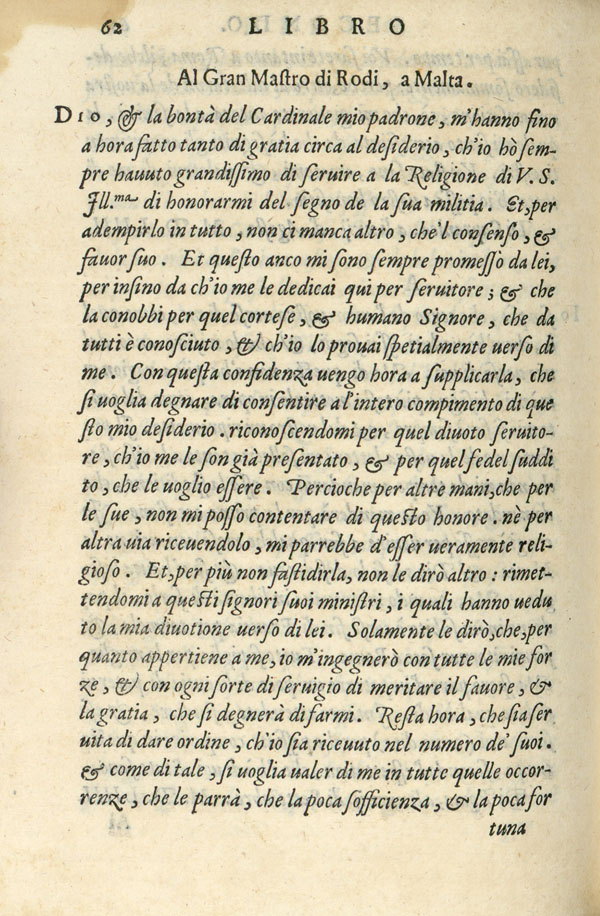 62 LIBRO
Al Gran Maſtro di Rodi, a Malta.
DIO, & la bontà del Cardinale mio padrone, m'hanno fino
a hora fatto tanto di gratia circa al deſiderio, ch'io hò ſem-
pre hauuto grandiſſimo di ſeruire a la Religione di V. S.
Ill.ma di honorarmi del ſegno de la ſua militia. Et, per
adempirlo in tutto, non ci manca altro, che'l conſenſo, &
fauor ſuo. Et queſto anco mi ſono ſempre promeſſo da lei,
per inſino da ch'io me le dedicai qui per ſeruitore; & che
la conobbi per quel corteſe, & humano Signore, che da
tutti è conoſciuto, & ch'io lo prouai ſpetialmente uerſo di
me. Con queſta confidenza uengo hora a ſupplicarla, che
ſi uoglia degnare di conſentire a l'intero compimento di que
ſto mio deſiderio. riconoſcendomi per quel diuoto ſeruito-
re, ch'io me le ſon già preſentato, & per quel fedel ſuddi
to, che le uoglio eſſere. Percioche per altre mani, che per
le ſue, non mi poſſo contentare di queſto honore. nè per
altra uia riceuendolo, mi parrebbe d'eſſer ueramente reli-
gioſo. Et, per più non faſtidirla, non le dirò altro: rimet-
tendomi a queſti ſignori ſuoi miniſtri, i quali hanno uedu
to la mia diuotione uerſo di lei. Solamente le dirò, che, per
quanto appertiene a me, io m'ingegnerò con tutte le mie for
ze, & con ogni ſorte di ſeruigio di meritare il fauore, &
la gratia, che ſi degnerà di farmi. Reſta hora, che ſia ſer
uita di dare ordine, ch'io ſia riceuuto nel numero de' ſuoi.
& come di tale, ſi uoglia ualer di me in tutte quelle occor-
renze, che le parrà, che la poca ſofficienza, & la poca for
tuna